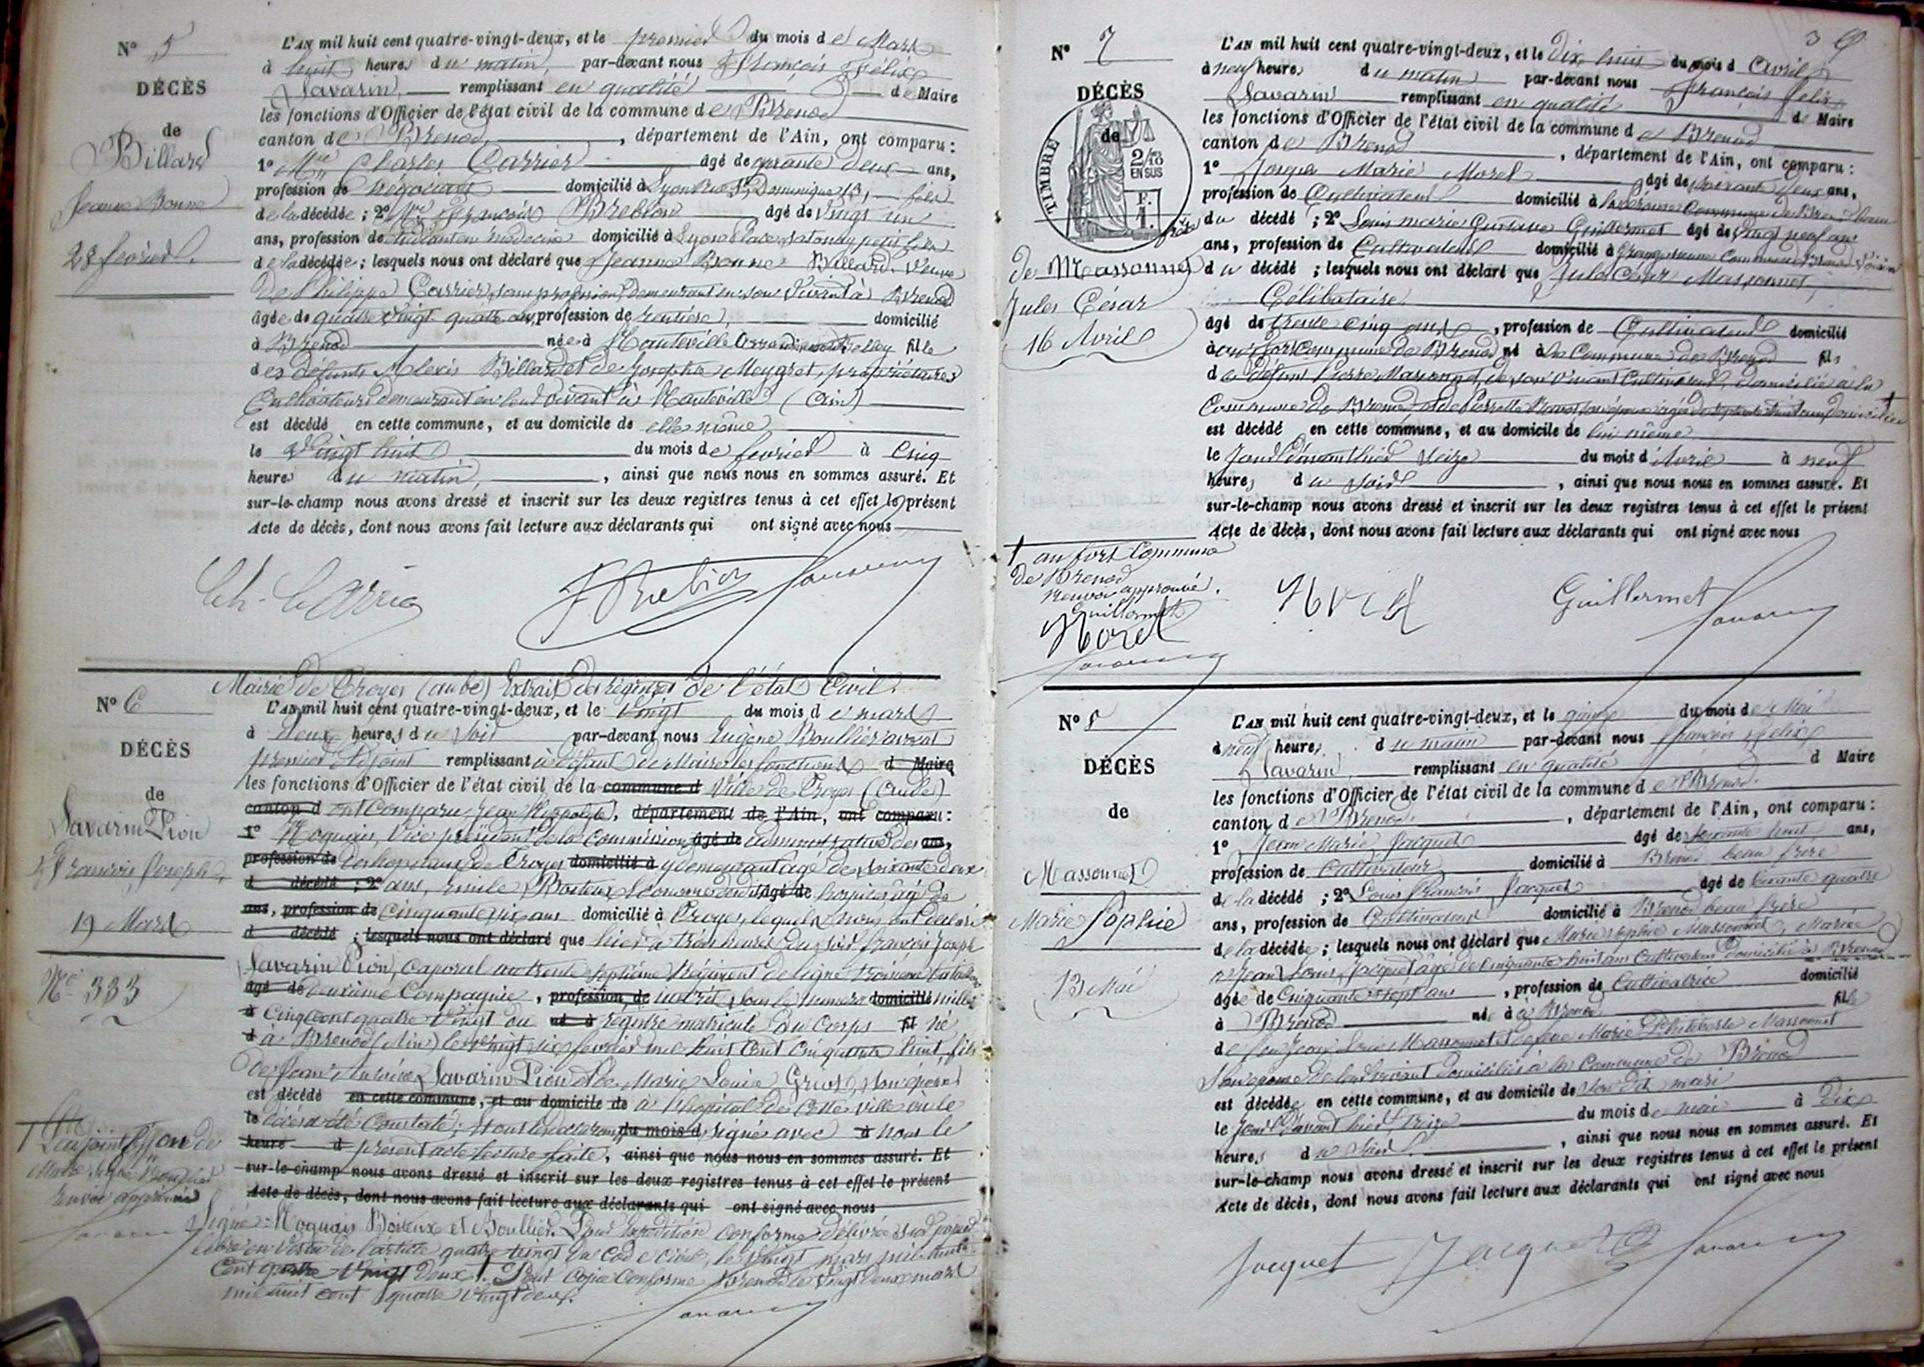 N° 5
DÉCÈS
de
Billard
Jeanne Bonne
28 février.
L'AN mil huit cent quatre-vingt-deux, et le premier du mois de Mars
à huit heures du matin, par-devant nous François Félix
Savarin, remplissant en qualité de Maire
les fonctions d'Officier de l'état civil de la commune de Brenod
canton de Brenod, département de l'Ain, ont comparu :
1° Mr Charles Carrier âgé de quarante deux ans,
profession de négociant domicilié à Lyon rue St Dominique 13, fils
de la décédée ; 2° Mr François Brebion âgé de vingt un
ans, profession de étudiant en médecine domicilié à Lyon place Satonay petit fils
de la décédée ; lesquels nous ont déclaré que Jeanne Bonne Billard, veuve
de Philippe Carrier, sans profession, demeurant en son vivant à Brenod
âgée de quatre vingt quatre ans, profession de rentière, domicilié
à Brenod née à Hauteville arrondissement Belley fille
des défunts Alexis Billard et de Josephte Meygret, propriétaires
cultivateurs demeurant en leur vivant à Hauteville (Ain)
est décédé en cette commune, et au domicile de elle même
le vingt huit du mois de février à cinq
heures du matin, ainsi que nous nous en sommes assuré. Et
sur-le-champ nous avons dressé et inscrit sur les deux registres tenus à cet effet le présent
Acte de décès, dont nous avons fait lecture aux déclarants qui ont signé avec nous
Ch. Carrier
F Brebion
Savarin
Mairie de Troyes (aube) Extrait des registres de l'état civil.
N° 6
DÉCÈS
de
Savarin Pion
François Joseph
19 Mars
N° 333
L'AN mil huit cent quatre-vingt-deux, et le vingt du mois de mars
à deux heures du soir par-devant nous Eugène Boullier avocat
premier adjoint remplissant à défaut de Maire les fonctions d Maire
les fonctions d'Officier de l'état civil de la commune d ville de Troyes (Aube)
canton d ont comparu Jean Hippolyte, département de l'Ain, ont comparu :
1° Hoquais, vice président de la commission âgé de administrative des ans,
profession de des hospices de Troyes domicilié à y demeurant âgé de soixante deux
d décédé ; 2° ans, Emile Boiteux économe dudit âgé de hospice âgé de
ans, profession de cinquante six ans domicilié à Troyes, lesquels nous ont déclaré
d décédé ; lesquels nous ont déclaré que hier à trois heures du soir François Joseph
Savarin Pion, caporal au trente septième régiment de ligne troisième bataillon
âgé de deuxième Compagnie, profession de sous le numéro domicilié mille
à cinq cent quatre vingt du né à registre matricule du Corps fil né
d à Brenod (Ain) le vingt six février mil huit cent cinquante huit fils
de Jean Antoine Savarin Pion et de Marie Louise son épouse
est décédé en cette commune, et au domicile de à l'hôpital de cette ville où le
le décès a été constaté; nous du mois d signé avec à nous le
heure d présent acte lecture faite, ainsi que nous nous en sommes assuré. Et
sur-le-champ nous avons dressé et inscrit sur les deux registres tenus à cet effet le présent
Acte de décès, dont nous avons fait lecture aux déclarants qui ont signé avec nous
Signé : Hoquais Boiteux et Boullier. Pour expédition conforme délivrée sur papier
libre en vertu de l'article quatre vingt du code civil, le vingt mars mil huit
cent quatre vingt deux. † Pour copie conforme Brenod le vingt deux mars
mil huit cent quatre vingt deux.
Savarin
†
renvoi approuvé
Savarin
39
N° 7
DÉCÈS
de
TIMBRE
2/10
EN SUS
F.
1.
de Massonnet
Jules César
16 Avril
L'AN mil huit cent quatre-vingt-deux, et le dix huit du mois d Avril
à neuf heures du matin par-devant nous François Félix
Savarin remplissant en qualité de Maire
les fonctions d'Officier de l'état civil de la commune de Brenod
canton de Brenod, département de l'Ain, ont comparu :
1° Joseph Marie Morel âgé de soixante deux ans,
profession de Cultivateur domicilié à commune de Brenod beau frère
du décédé ; 2° Louis marie Gustave Guillermet âgé de vingt neuf ans
ans, profession de Cultivateur domicilié à commune de Brenod voisin
du décédé ; lesquels nous ont déclaré que Jules César Massonnet,
Célibataire
âgé de trente cinq ans, profession de Cultivateur domicilié
à au fort commune de Brenod né à la Commune de Brenod fils
de défunt Pierre Massonnet, de son vivant Cultivateur, domicilié à la
Commune de Brenod et de Pierrette son épouse âgée de domiciliée †
est décédé en cette commune, et au domicile de lui même
le jour d'avant hier seize du mois d'Avril à neuf
heures du soir, ainsi que nous nous en sommes assuré. Et
sur-le-champ nous avons dressé et inscrit sur les deux registres tenus à cet effet le présent
Acte de décès, dont nous avons fait lecture aux déclarants qui ont signé avec nous
† au fort Commune
de Brenod
renvoi approuvé.
Guillermet
Morel
Savarin
Morel
Guillermet
Savarin
N° 8
DÉCÈS
de
Massonnet
Marie Sophie
13 Mai
L'AN mil huit cent quatre-vingt-deux, et le quinze du mois de Mai
à neuf heures du matin par-devant nous François Félix
Savarin, remplissant en qualité d Maire
les fonctions d'Officier de l'état civil de la commune de Brenod.
canton de Brenod, département de l'Ain, ont comparu :
1° Jean Marie Jacquet âgé de soixante huit ans,
profession de Cultivateur domicilié à Brenod beau frère
de la décédé ; 2° Louis François Jacquet âgé de soixante quatre
ans, profession de Cultivateur domicilié à Brenod beau frère
de la décédée ; lesquels nous ont déclaré que Marie Sophie Massonnet, Mariée
à Jean Louis Jacquet âgé de cinquante huit ans Cultivateur domicilié à Brenod
âgée de Cinquante sept ans, profession de Cultivatrice domicilié
à Brenod née à Brenod fille
de feu Jean Louis Massonnet et de feue Marie Philiberte Massonnet
son épouse de leur vivant domiciliés à la commune de Brenod
est décédée en cette commune, et au domicile de son dit mari
le jour d'avant hier treize du mois de mai à dix
heures du soir, ainsi que nous nous en sommes assuré. Et
sur-le-champ nous avons dressé et inscrit sur les deux registres tenus à cet effet le présent
Acte de décès, dont nous avons fait lecture aux déclarants qui ont signé avec nous
Jacquet
Jacquet
Savarin